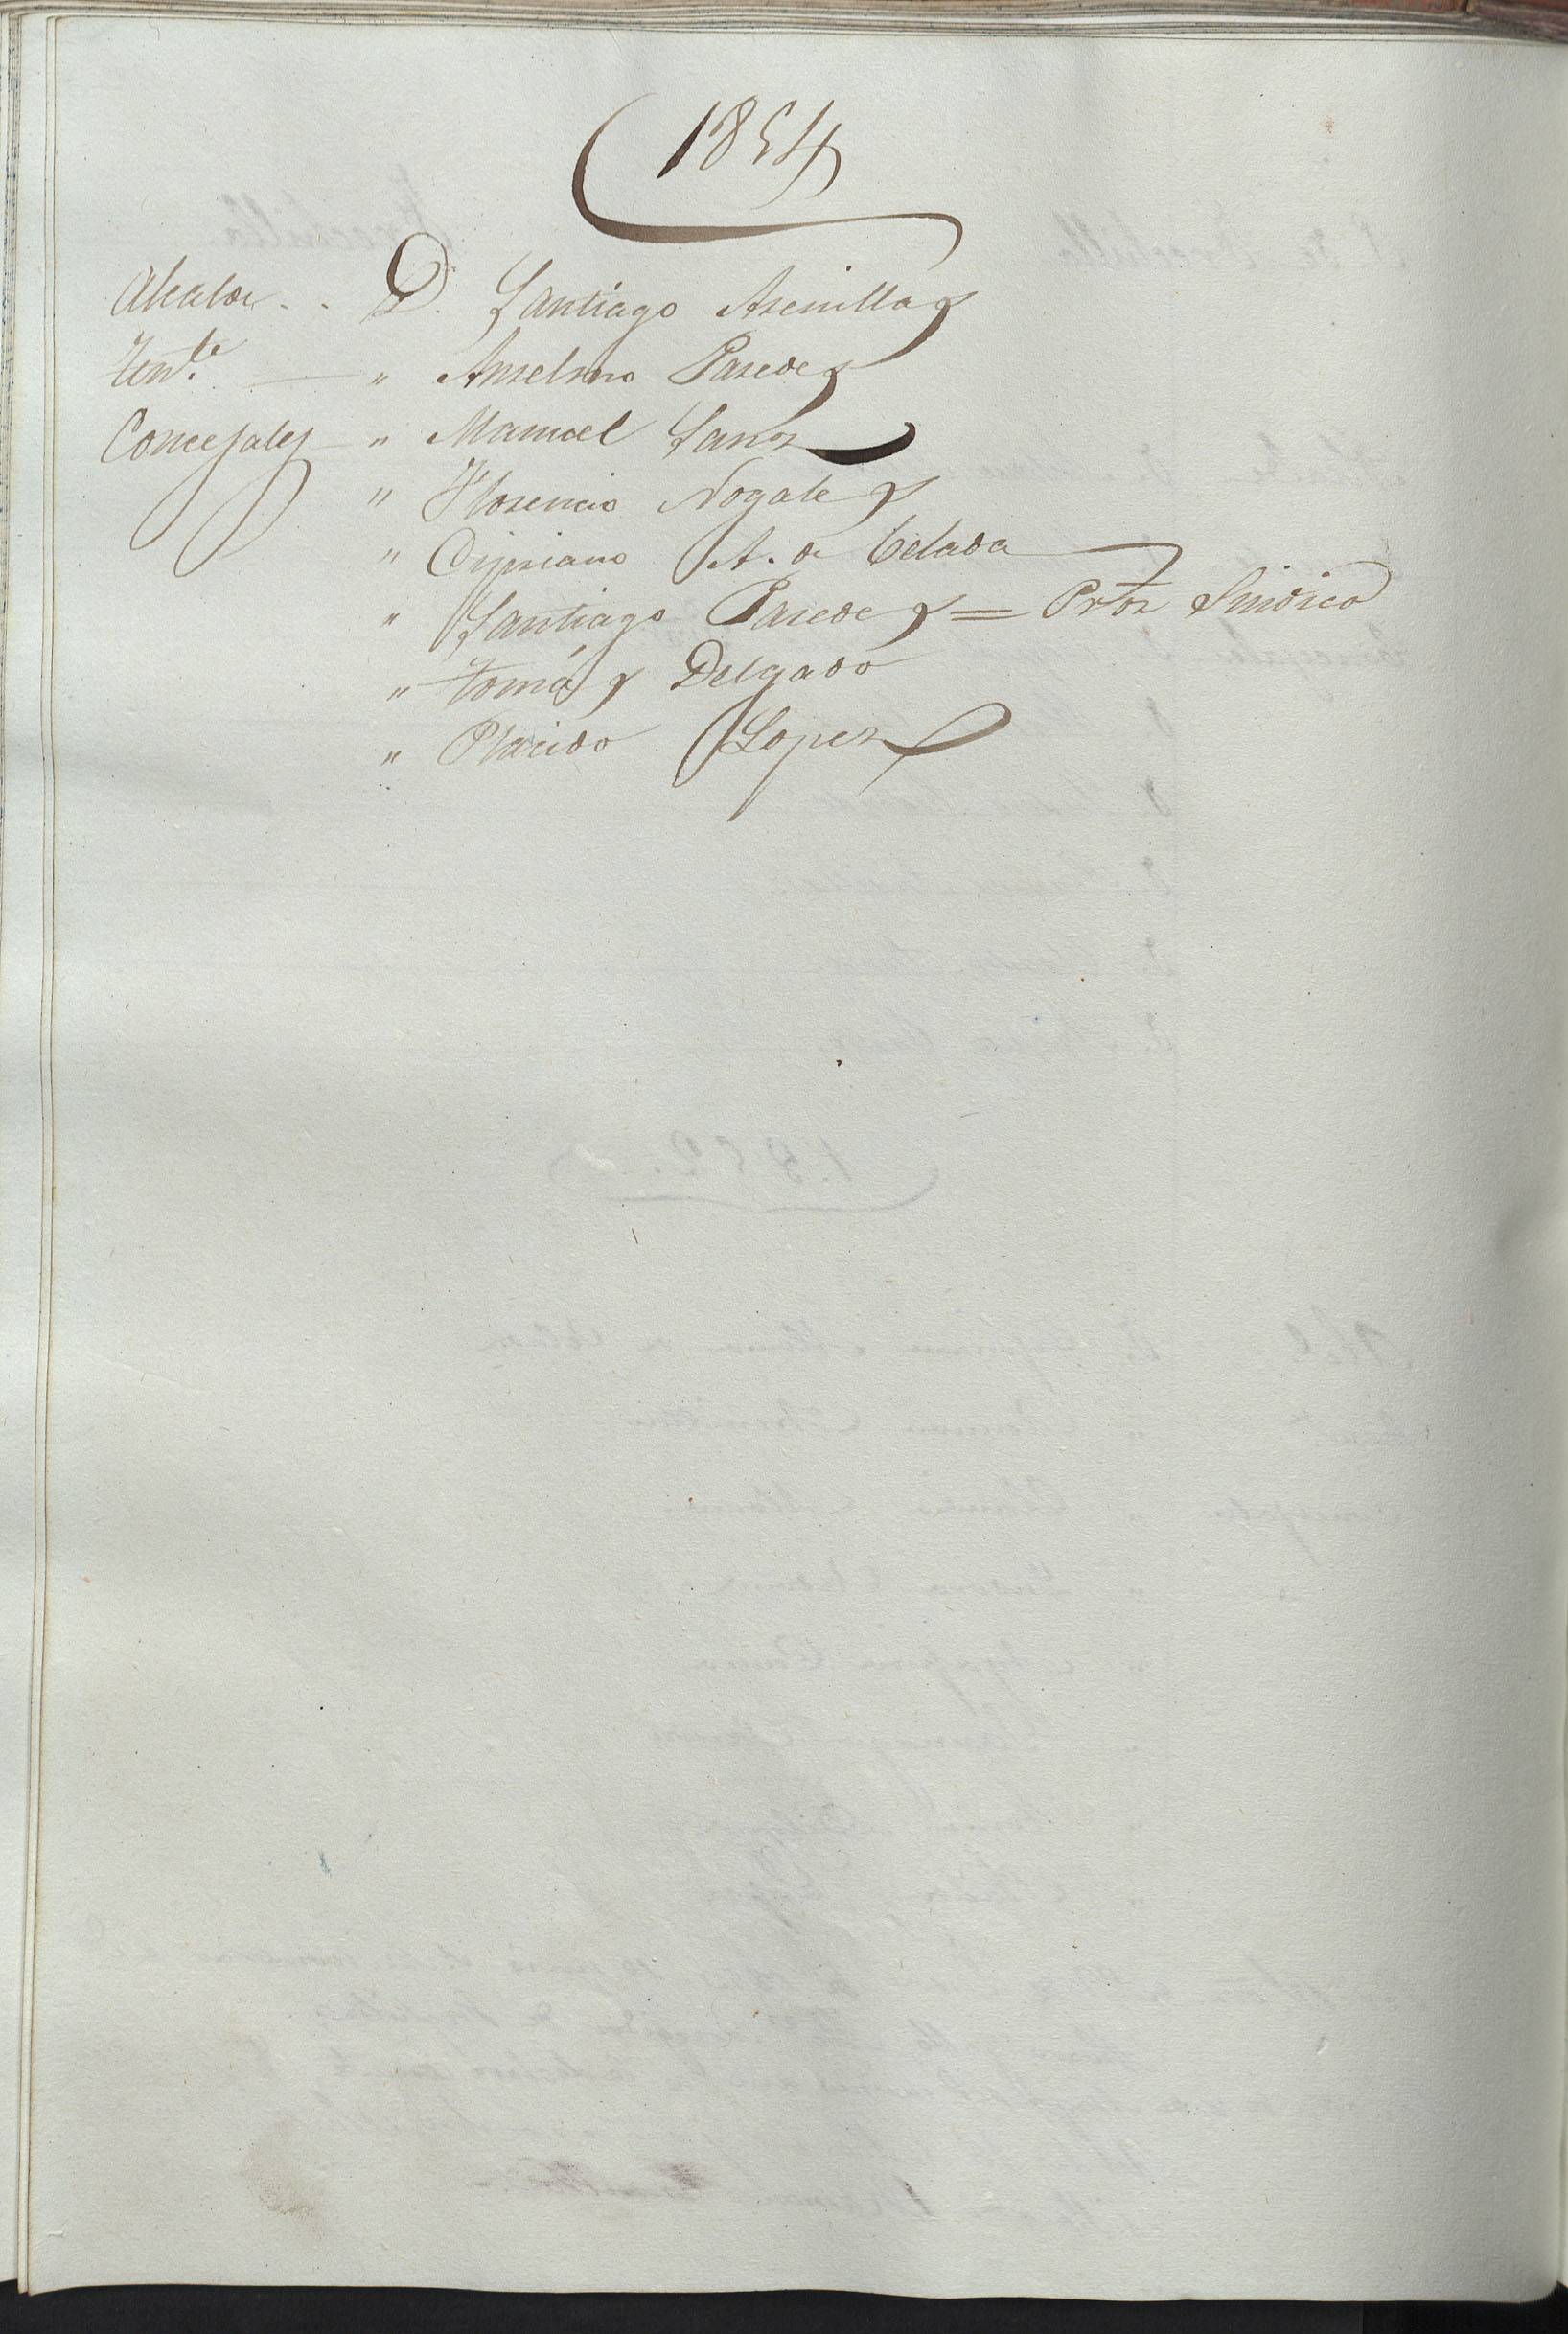 1854
Alcalde . . D. Santiago Arenillas
Ten.te — " Anselmo Paredes
Concejales — " Manuel Sanz
" Florencio Nogales
" Cipriano A. de Celada
" Santiago Paredes = Pror Sindico
" Tomás Delgado
" Placido Lopez